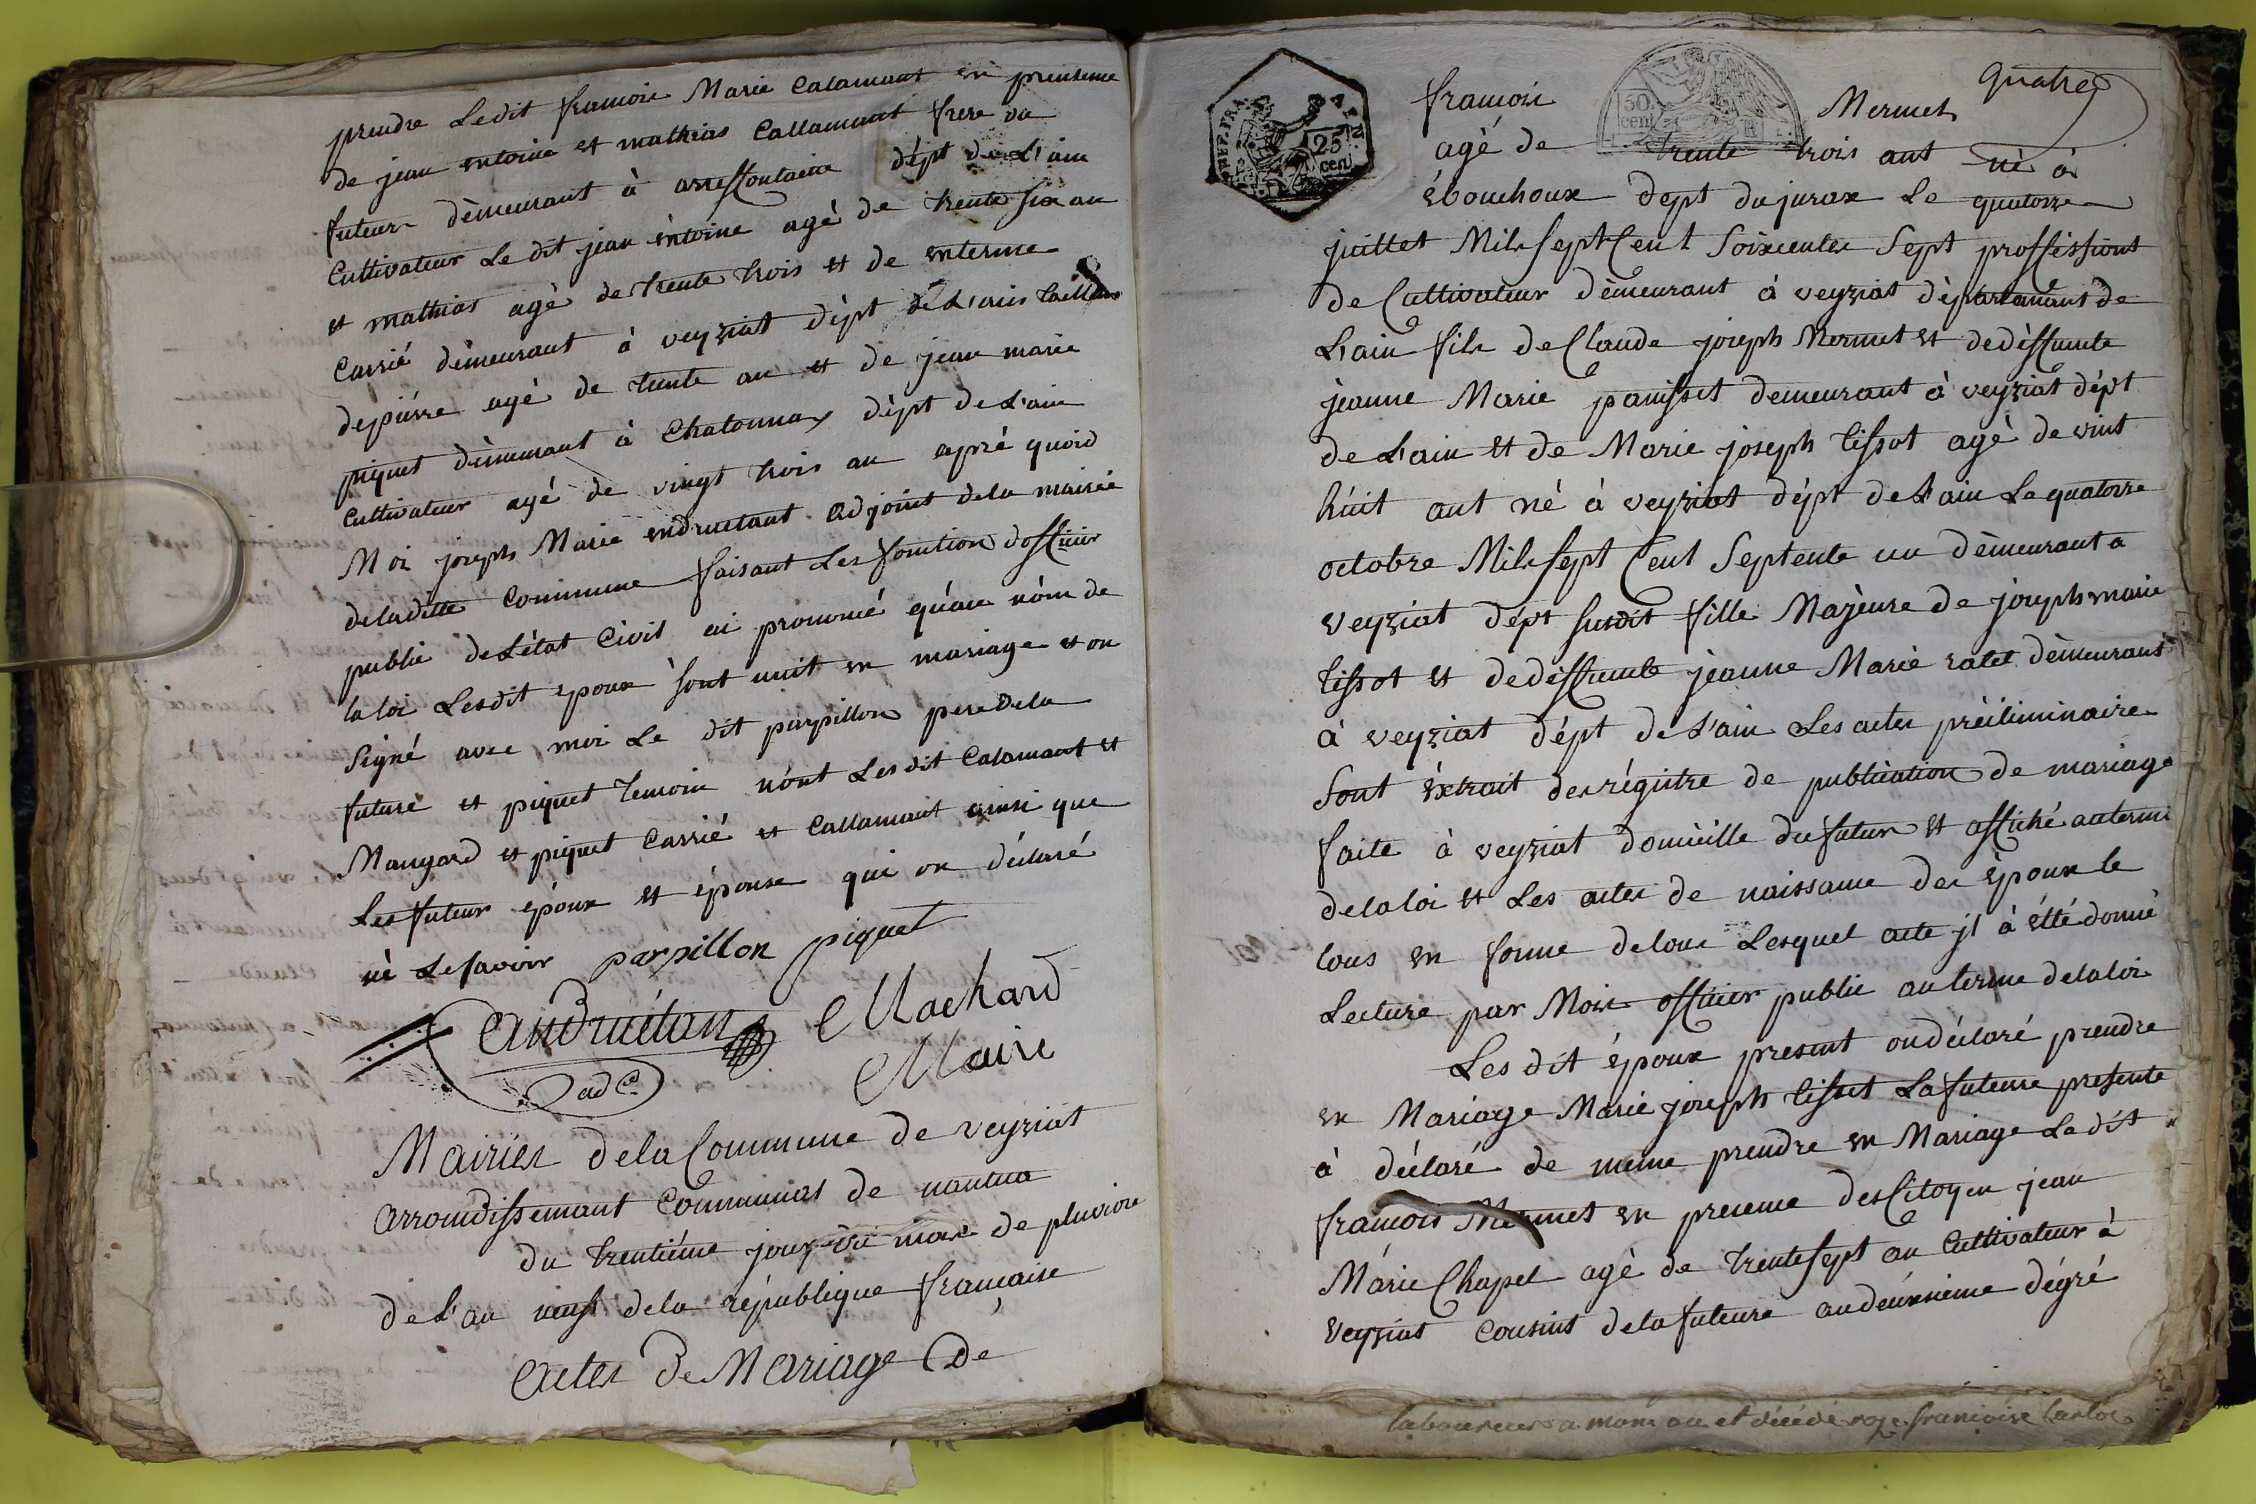 prendre Ledit francois Marie Calamant en presense
de jean entoine et mathias Callamant frere du
futeur dèmeurant à arresfontaine dépt de L'ain
Cultivateur Le dit jean èntoine agé de trente six an
et mathias agé de trente trois et de enterme
Carrié dèmeurant à veyziat dépt de L'ain
depierre agé de tente an et de jean marie
piquet dèmeurant à Chatonnax dépt de L'ain
Cultivateur agé de vingt trois an apré quoid
Moi joseph Marie endruetant adjoint dela mairie
deladitte Commune faisant Les fonution dofficier
public deLétat Civil ai pronomé qu'au nòm de
la loi Lesdit epoux sont unit en mariage et on
Signé avec moi Le dit parpillon pere dela
future et piquet temoin nont Lesdit Calamant et
Maugard et piquet Carrié et Callamant ainsi que
Les futeur époux et épouse qui on déclaré
nè Lesavoir parpillon piquet
andruétan Machard
adt. Maire
Mairies dela Commune de veyziat
arrondissemant Communal de nantua
du trentiéme jour du mois de pluviose
deL'an neuf dela république francaise
actes de Mariage de
quatre
REP. FRA
25
cen
50
cen
francois Mermet
agé de trente trois ant né à
ébouchoux dépt dujurax Le quatorze
juillet Mil sept Cent Soixcentes Sept proffissiont
de Cultivateur dèmeurant à veyziat départamant de
L'ain fils de Claude joseph Mermet et dedéffunte
jeanne Marie panisset demeurant à veyziat dépt
de L'ain et de Marie joseph tissot agé de vint
húit ant né à veyziat dépt de L'ain Le quatorze
octobre Mil sept Cent Septente un dèmeurant a
veyziat dépt Susdit fille Majeure de joseph marie
tissot et dedéffunte jeanne Marie ratet dèmeurant
à veyziat dépt de L'ain Les actes préiliminaire
Sont èxtrait des régitre de publication de mariage
faite à veyziat domicille du futeur et affiché auterme
delaloi et Les actes de naissance des époux le
tous en forme de tous Lesquel acte jl à étté donné
Lecture par Moi officier public au terme delaloi
Les dit époux present on déclaré prendre
en Mariage Marie joseph tissot Lafuteure presente
à déclaré de meme prendre en Mariage Ledit
francois Mermet en presence des Citoyen jean
Márie Chapel agè de trentesept an Cultivateur à
veyziat Cousint delafuteure audeuxsieme dégré
laboureur a